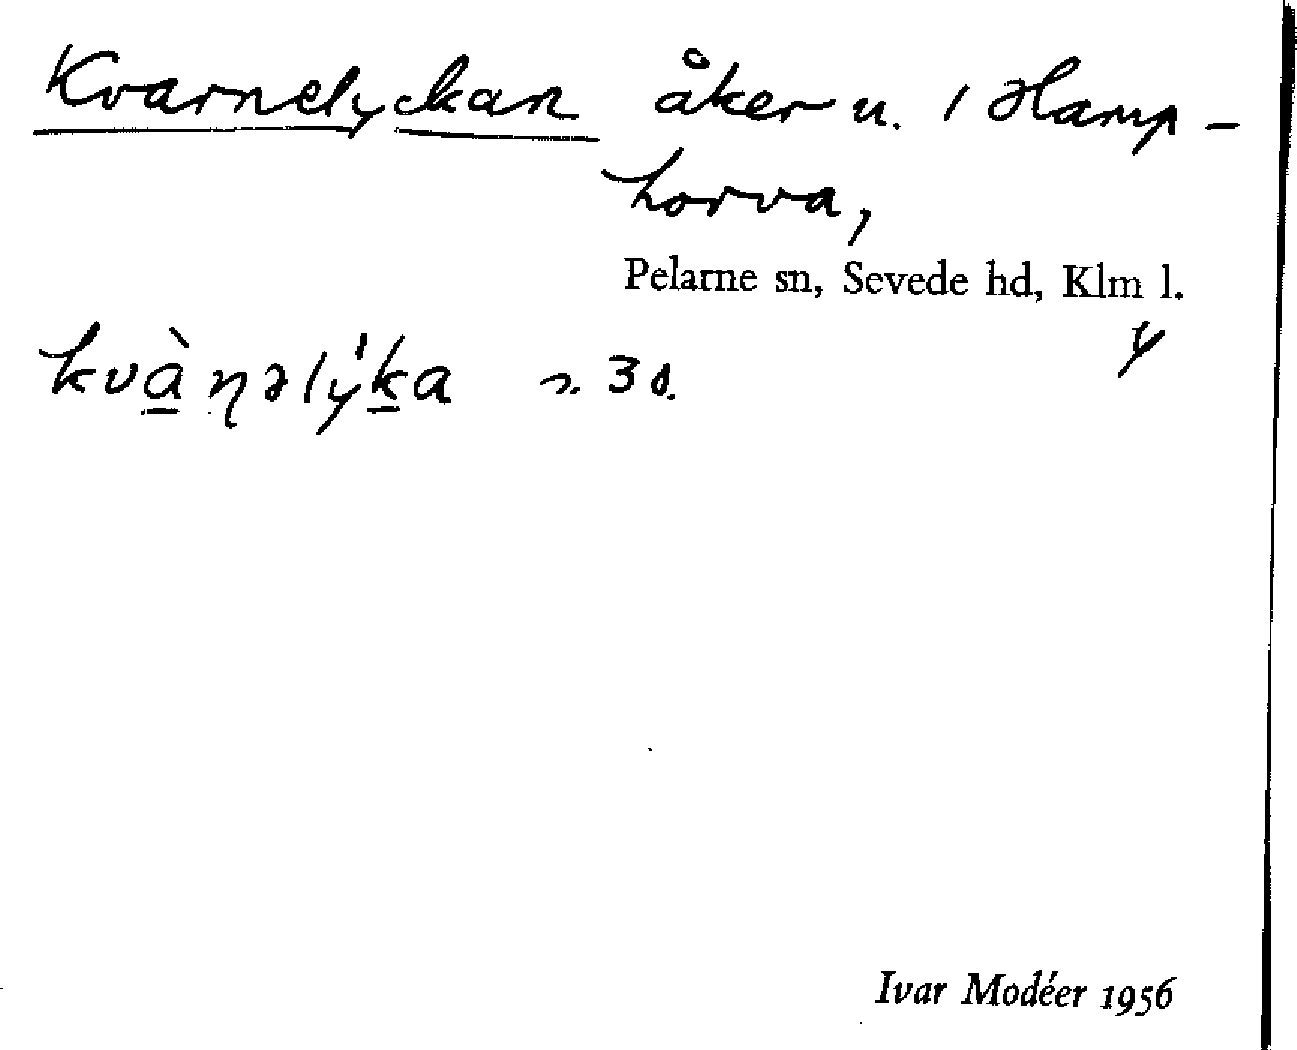 Kvarnelyckan åker u. 1 Hamp-
horva,
Pelarne sn, Sevede hd, Klm l.
y
kvàɳəlýka n. 3 d.
Ivar Modéer 1956